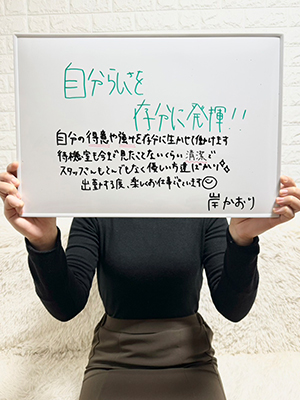 自分らしさを
存分に発揮!!
自分の得意や強みを存分に生かせて働けます
待機室も今まで見たことないくらい清潔で
スタッフさんもとんでもなく優しい方達ばかり
出勤する度、楽しくお仕事できています
岸かおり